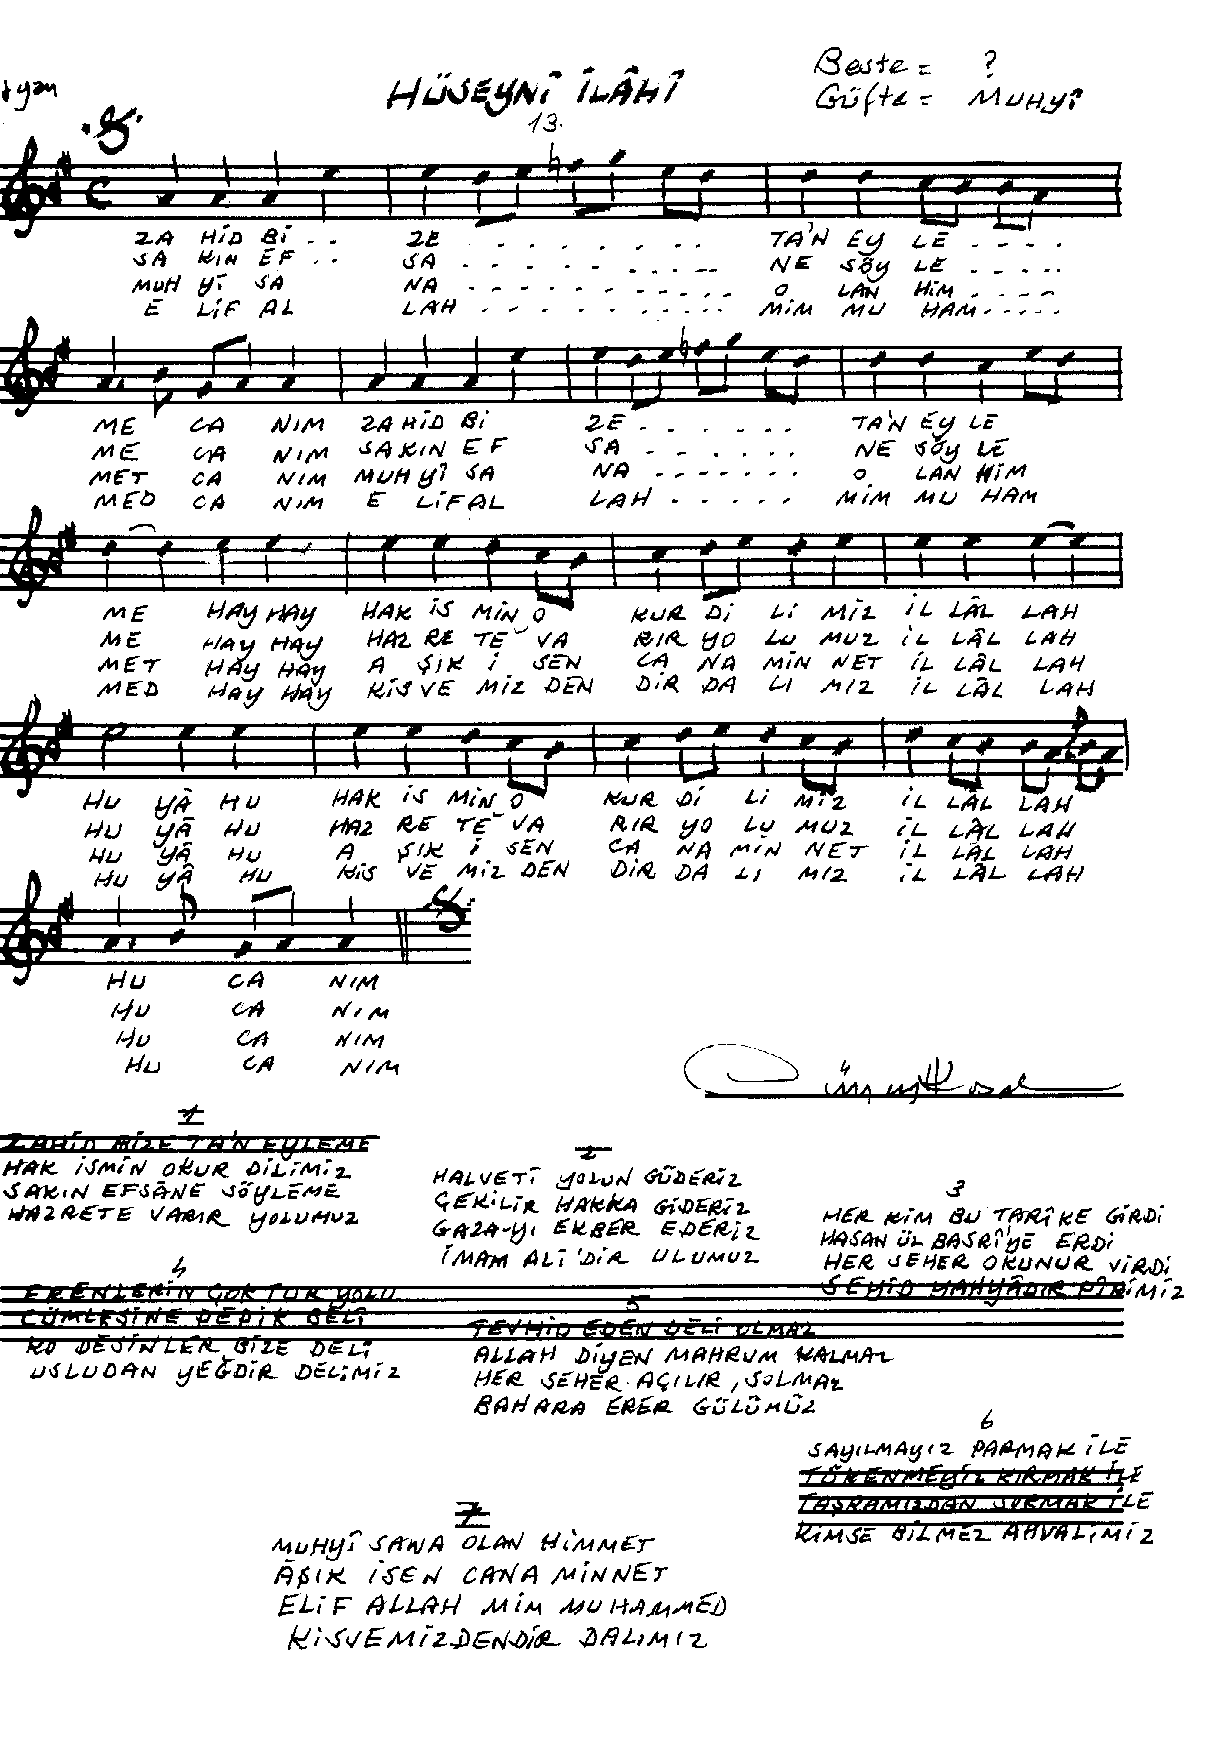 HÜSEYNÎ İLÂHÎ
Beste = ?
Güfte = MUHYÎ
13.
ZA HİD Bİ .. ZE ........ TA'N EY LE ....
SA KIN EF .. SA ........ NE SÖY LE .....
MUH YÎ SA NA ........... O LAN HİM .....
E LİF AL LAH ........... MİM MU HAM.....
ME CA NIM ZA HİD Bİ ZE ....... TA'N EY LE
ME CA NIM SA KIN EF SA ....... NE SÖY LE
MET CA NIM MUH YÎ SA NA ....... O LAN HİM
MED CA NIM E LİF AL LAH ..... MİM MU HAM
ME HAY HAY HAK İS MİN O KUR Dİ Lİ MİZ İL LÂL LAH
ME HAY HAY HAZ RE TE VA RIR YO LU MUZ İL LÂL LAH
MET HAY HAY A ŞIK İ SEN CA NA MİN NET İL LÂL LAH
MED HAY HAY KİS VE MİZ DEN DİR DA LI MIZ İL LÂL LAH
HU YÂ HU HAK İS MİN O KUR Dİ Lİ MİZ İL LÂL LAH
HU YÂ HU HAZ RE TE VA RIR YO LU MUZ İL LÂL LAH
HU YÂ HU A ŞIK İ SEN CA NA MİN NET İL LÂL LAH
HU YÂ HU KİS VE MİZ DEN DİR DA LI MIZ İL LÂL LAH
HU CA NIM
HU CA NIM
HU CA NIM
HU CA NIM
1
ZAHİD BİZE TA'N EYLEME
HAK İSMİN OKUR DİLİMİZ
SAKIN EFSÂNE SÖYLEME
HAZRETE VARIR YOLUMUZ
2
HALVETÎ YOLUN GÜDERİZ
ÇEKİLİR HAKKA GİDERİZ
GAZA-YI EKBER EDERİZ
İMAM ALİ'DİR ULUMUZ
3
HER KİM BU TARÎKE GİRDİ
HASAN ÜL BASRÎ'YE ERDİ
HER SEHER OKUNUR VİRDİ
SEHİD MAHYÂDIR PİRİMİZ
4
ERENLERİN ÇOKTUR YOLU
CÜMLESİNE DEDİK BELÎ
KO DESİNLER BİZE DELİ
USLUDAN YEĞDİR DELİMİZ
5
TEVHİD EDEN DELİ OLMAZ
ALLAH DİYEN MAHRUM KALMAZ
HER SEHER AÇILIR, SOLMAZ
BAHARA ERER GÜLÜMÜZ
6
SAYILMAYIZ PARMAK İLE
TÜKENMEYİZ KIRMAK İLE
TAŞRAMIZDAN SORMAK İLE
KİMSE BİLMEZ AHVALİMİZ
7
MUHYÎ SANA OLAN HİMMET
ÂŞIK İSEN CANA MİNNET
ELİF ALLAH MİM MUHAMMED
KİSVEMİZDENDİR DALIMIZ